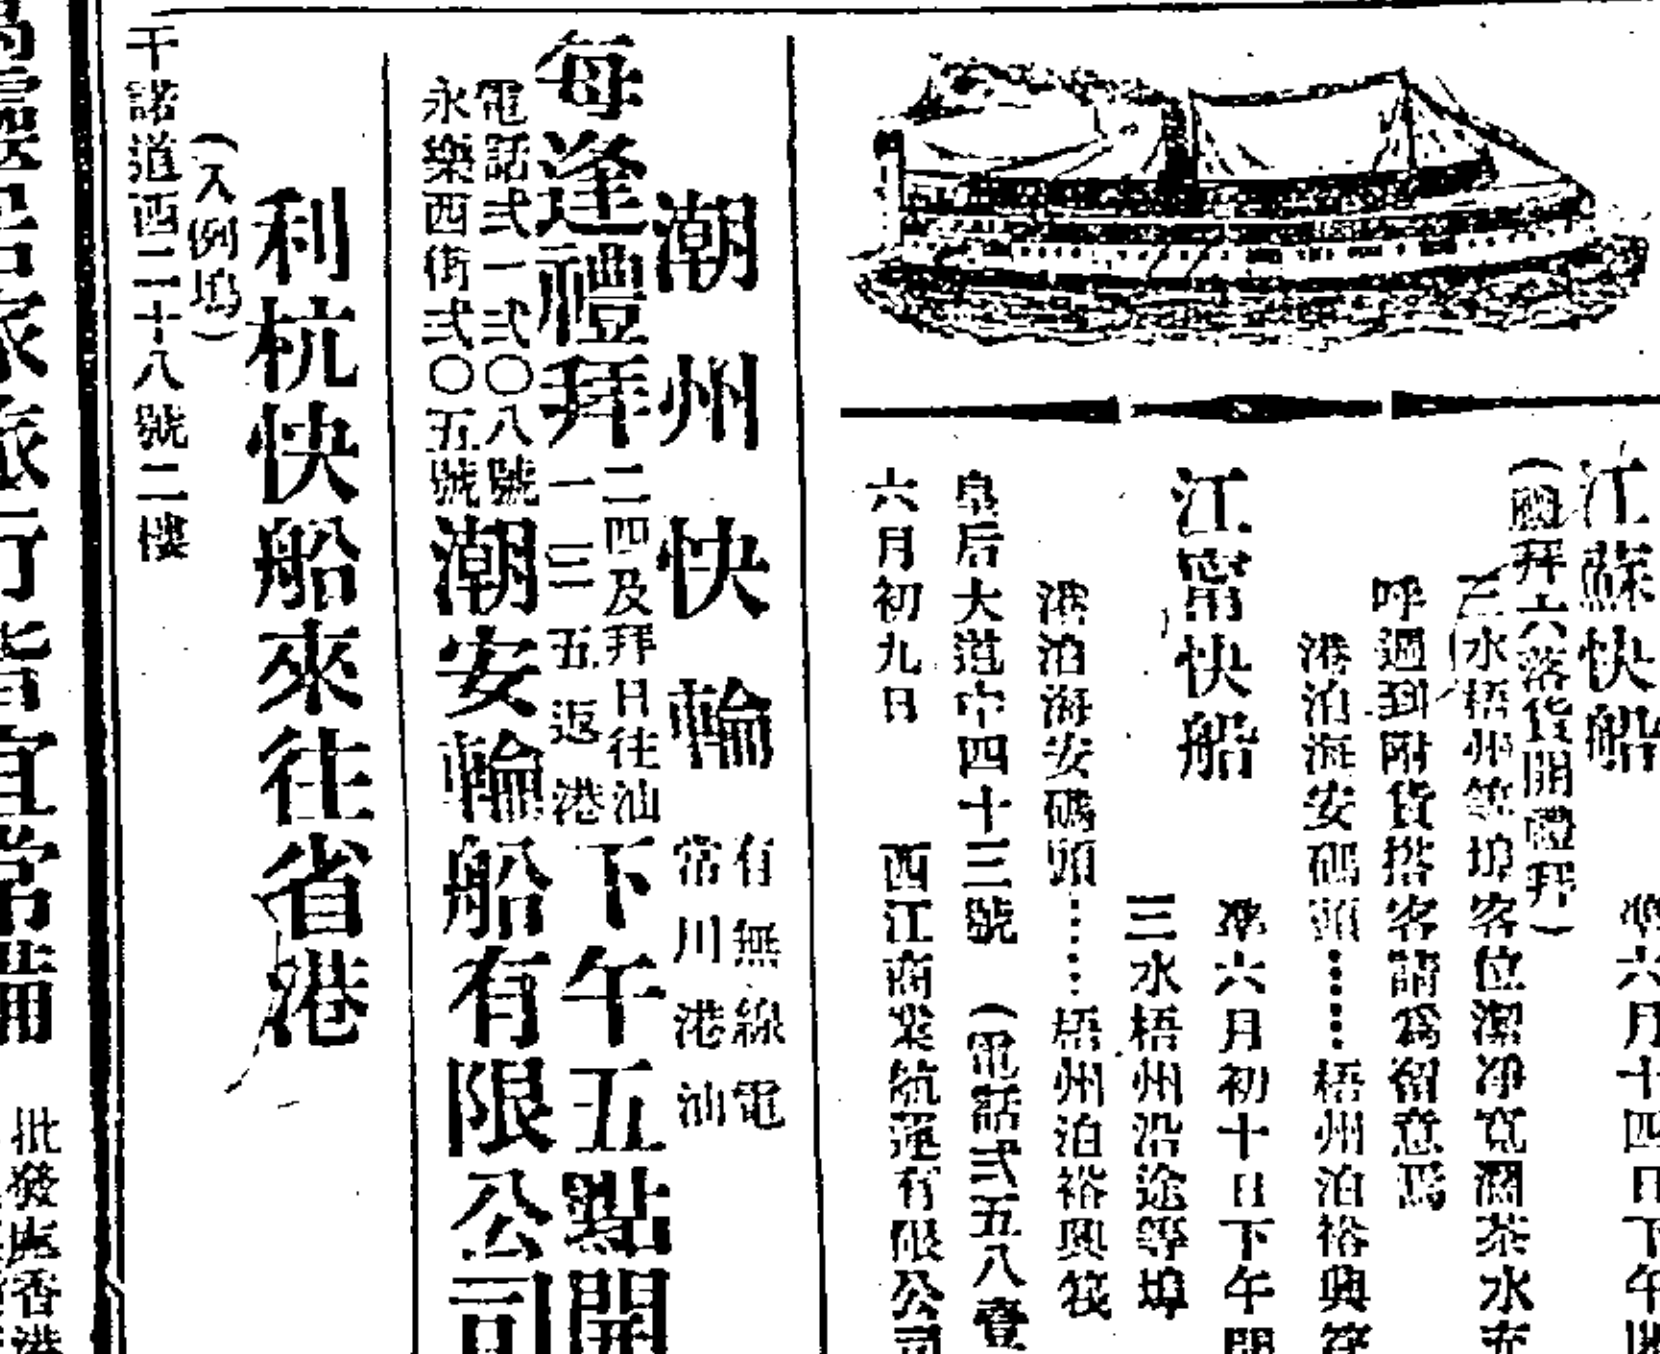 江蘇快船
六月十四日下午
拜六落貨開禮拜)
三水梧州等埠客位潔净寬濶茶水
呼過到附貨搭客請爲留意焉
港泊海安碼頭……梧州泊裕興
江寗快船
準六月初十日下午開
三水梧州沿途等埠
港泊海安碼頭……梧州泊裕興筏
皇后大道中四十三號 (電話弍五八壹
六月初九日 西江商業航運有限公司
潮州快輪 有無線電
常川港汕
每逢禮拜 二四及拜日往汕
一三五返港
下午五點開
電話弍一弍〇八號
永樂西街弍〇五號
潮安輪船有限公司
利杭快船來往省港
(入例塢)
干諾道西二十八號二樓
批發處香港